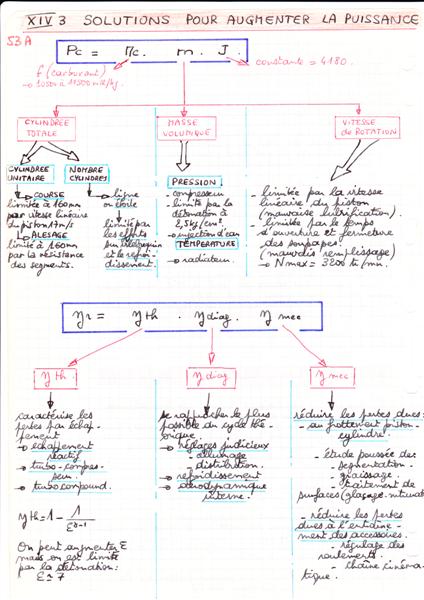 XIV 3 SOLUTIONS POUR AUGMENTER LA PUISSANCE
53A
Pc = Πc. m. J
f (carburant)
constante = 4180.
CYLINDREE TOTALE
MASSE VOLUMIQUE
VITESSE de ROTATION
CYLINDREE UNITAIRE
NOMBRE CYLINDRES
→ COURSE
limitée à 160mm
par vitesse linéaire
du piston 17m/s
→ ALESAGE
limité à 160mm
par la résistance
des segments.
→ ligne
ou étoile
limité par
les efforts
sur vilebrequin
et le refroi-
dissement.
PRESSION.
- compresseur
- limitée par la
détonation à
2,5kg/cm².
→ injection d'eau
TEMPERATURE
→ radiateur.
- limitée par la vitesse
linéaire du piston
(mauvaise lubrification).
- limitée par le temps
d'ouverture et fermeture
des soupapes
(mauvais remplissage)
→ Nmax = 3200 tr/mn.
ηr = ηth . ηdiag . ηmec
ηth.
ηdiag
ηmec
caractérise les
pertes par échap-
pement
→ échappement
réactif
→ turbo-compres-
seur.
→ turbo compound.
ηth = 1 - 1/ε^γ-1
On peut augmenter ε
mais on est limité
par la détonation:
ε ≃ 7
se rapprocher le plus
possible du cycle thé-
orique.
→ réglages judicieux
- allumage
- distribution.
→ refroidissement
→ aérodynamique
interne.
réduire les pertes dues:
- au frottement piston-
cylindre.
- étude poussée de:
- segmentation.
- graissage.
- traitement de
surfaces (glaçage.nitruration
- réduire les pertes
dues à l'entraîne-
ment des accessoires.
- réglage des
roulements.
- chaîne cinéma-
tique.